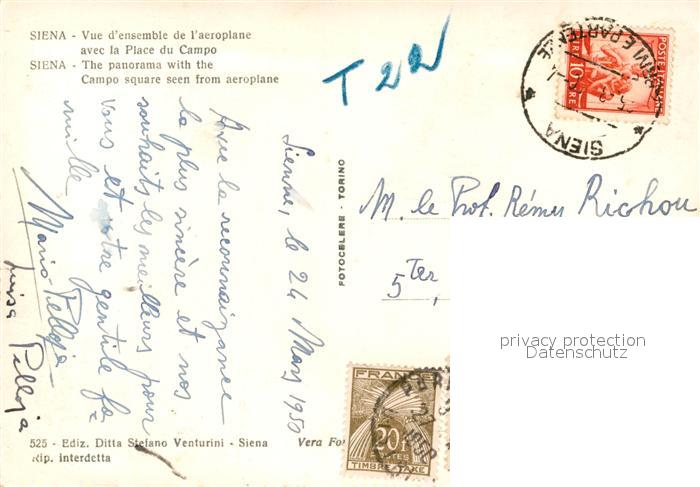 SIENA - Vue d'ensemble de l'aeroplane
avec la Place du Campo
SIENA - The panorama with the
Campo square seen from aeroplane
T 22
POSTE ITALIANE
LIRE 10 LIRE
SIENA
Sienne, le 24 Mars 1950
Avec la reconnaissance
la plus sincère et nos
souhaits les meilleurs pour
Vous et votre gentile fa-
mille
Mario Pelloja
Luisa Pelloja
FOTOCELERE - TORINO
M. le Prof. Rémy Richou
5 Ter,
privacy protection
Datenschutz
FRAN
20F
TIMBRE TAXE
PARI
1950
525 - Ediz. Ditta Stefano Venturini - Siena
Rip. interdetta
Vera Fo